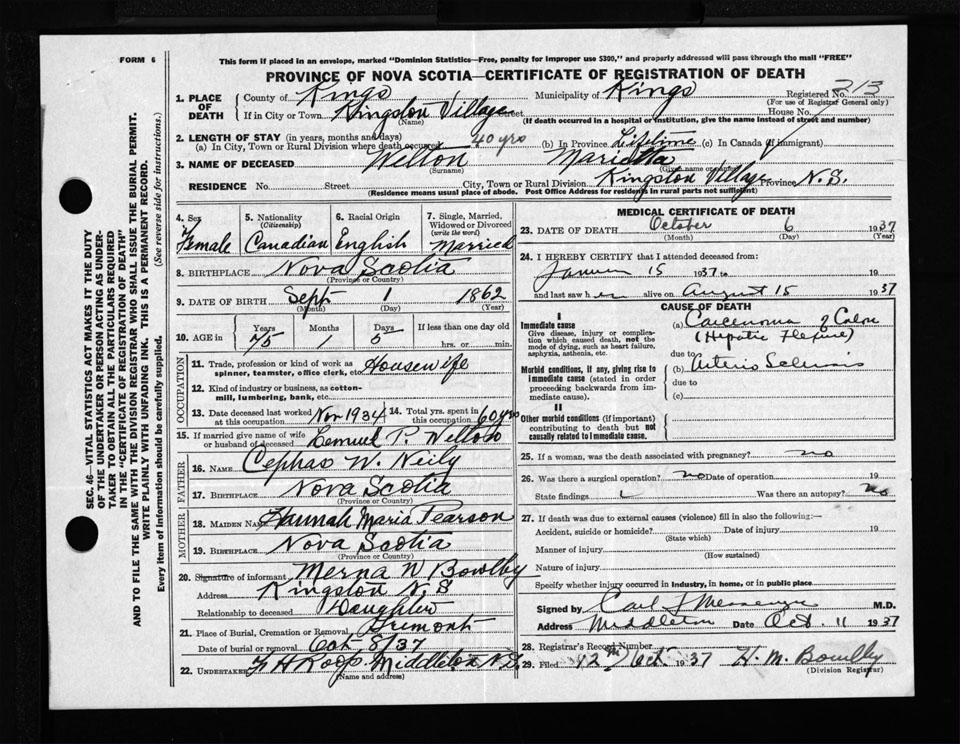 FORM 6
This form if placed in an envelope, marked "Dominion Statistics—Free, penalty for improper use $300," and properly addressed will pass through the mail "FREE"
PROVINCE OF NOVA SCOTIA—CERTIFICATE OF REGISTRATION OF DEATH
1. PLACE OF DEATH County of Kings Municipality of Kings Registered No. 213
(For use of Registrar General only)
If in City or Town Kingston Village Street House No.
(Name) (If death occurred in a hospital or institution, give the name instead of street and number)
2. LENGTH OF STAY (in years, months and days)
(a) In City, Town or Rural Division where death occurred 40 yrs (b) In Province Lifetime (c) In Canada (if immigrant)
3. NAME OF DECEASED Welton Marietta
(Surname) (Given name or names)
RESIDENCE No. Street City, Town or Rural Division Kingston Village Province N.S.
(Residence means usual place of abode. Post Office Address for residents in rural parts not sufficient)
4. Sex Female
5. Nationality (Citizenship) Canadian
6. Racial Origin English
7. Single, Married, Widowed or Divorced (write the word) Married
8. BIRTHPLACE Nova Scotia
(Province or Country)
9. DATE OF BIRTH Sept 1 1862
(Month) (Day) (Year)
10. AGE in Years 75 Months 1 Days 5 If less than one day old
hrs. or min.
OCCUPATION
11. Trade, profession or kind of work as spinner, teamster, office clerk, etc. Housewife
12. Kind of industry or business, as cotton-mill, lumbering, bank, etc.
13. Date deceased last worked at this occupation Nov 1934 14. Total yrs. spent in this occupation 60 yrs
15. If married give name of wife or husband of deceased Lemuel P. Welton
FATHER
16. NAME Cephas W. Neily
17. BIRTHPLACE Nova Scotia
(Province or Country)
MOTHER
18. MAIDEN NAME Hannah Maria Pearson
19. BIRTHPLACE Nova Scotia
(Province or Country)
20. Signature of informant Merna W Bowlby
Address Kingston N.S
Relationship to deceased Daughter
21. Place of Burial, Cremation or Removal Tremont
Date of burial or removal Oct 8/37
22. UNDERTAKER F H Roop Middleton N.S.
(Name and address)
MEDICAL CERTIFICATE OF DEATH
23. DATE OF DEATH October 6 1937
(Month) (Day) (Year)
24. I HEREBY CERTIFY that I attended deceased from:
15 1937 to 19
and last saw her alive on August 15 1937
CAUSE OF DEATH
I
Immediate cause
Give disease, injury or complication which caused death, not the mode of dying, such as heart failure, asphyxia, asthenia, etc.
(a) Carcinoma of Colon
(Hepatic Flexure)
due to
Morbid conditions, if any, giving rise to immediate cause (stated in order proceeding backwards from immediate cause).
(b) Arterio Sclerosis
due to
(c)
II
Other morbid conditions (if important) contributing to death but not causally related to immediate cause.
25. If a woman, was the death associated with pregnancy? no
26. Was there surgical operation? no Date of operation 19
State findings Was there an autopsy? no
27. If death was due to external causes (violence) fill in also the following:—
Accident, suicide or homicide? Date of injury 19
(State which)
Manner of injury
(How sustained)
Nature of injury
Specify whether injury occurred in industry, in home, or in public place
Signed by Carl Messenger M.D.
Address Middleton Date Oct. 11 1937
28. Registrar's Record Number
29. Filed 12th Oct 1937 H. M. Bowlby
(Division Registrar)
SEC. 46—VITAL STATISTICS ACT MAKES IT THE DUTY
OF THE UNDERTAKER OR PERSON ACTING AS UNDER-
TAKER TO OBTAIN ALL THE PARTICULARS REQUIRED
IN THE "CERTIFICATE OF REGISTRATION OF DEATH"
AND TO FILE THE SAME WITH THE DIVISION REGISTRAR WHO SHALL ISSUE THE BURIAL PERMIT.
WRITE PLAINLY WITH UNFADING INK. THIS IS A PERMANENT RECORD.
Every item of Information should be carefully supplied. (See reverse side for instructions.)